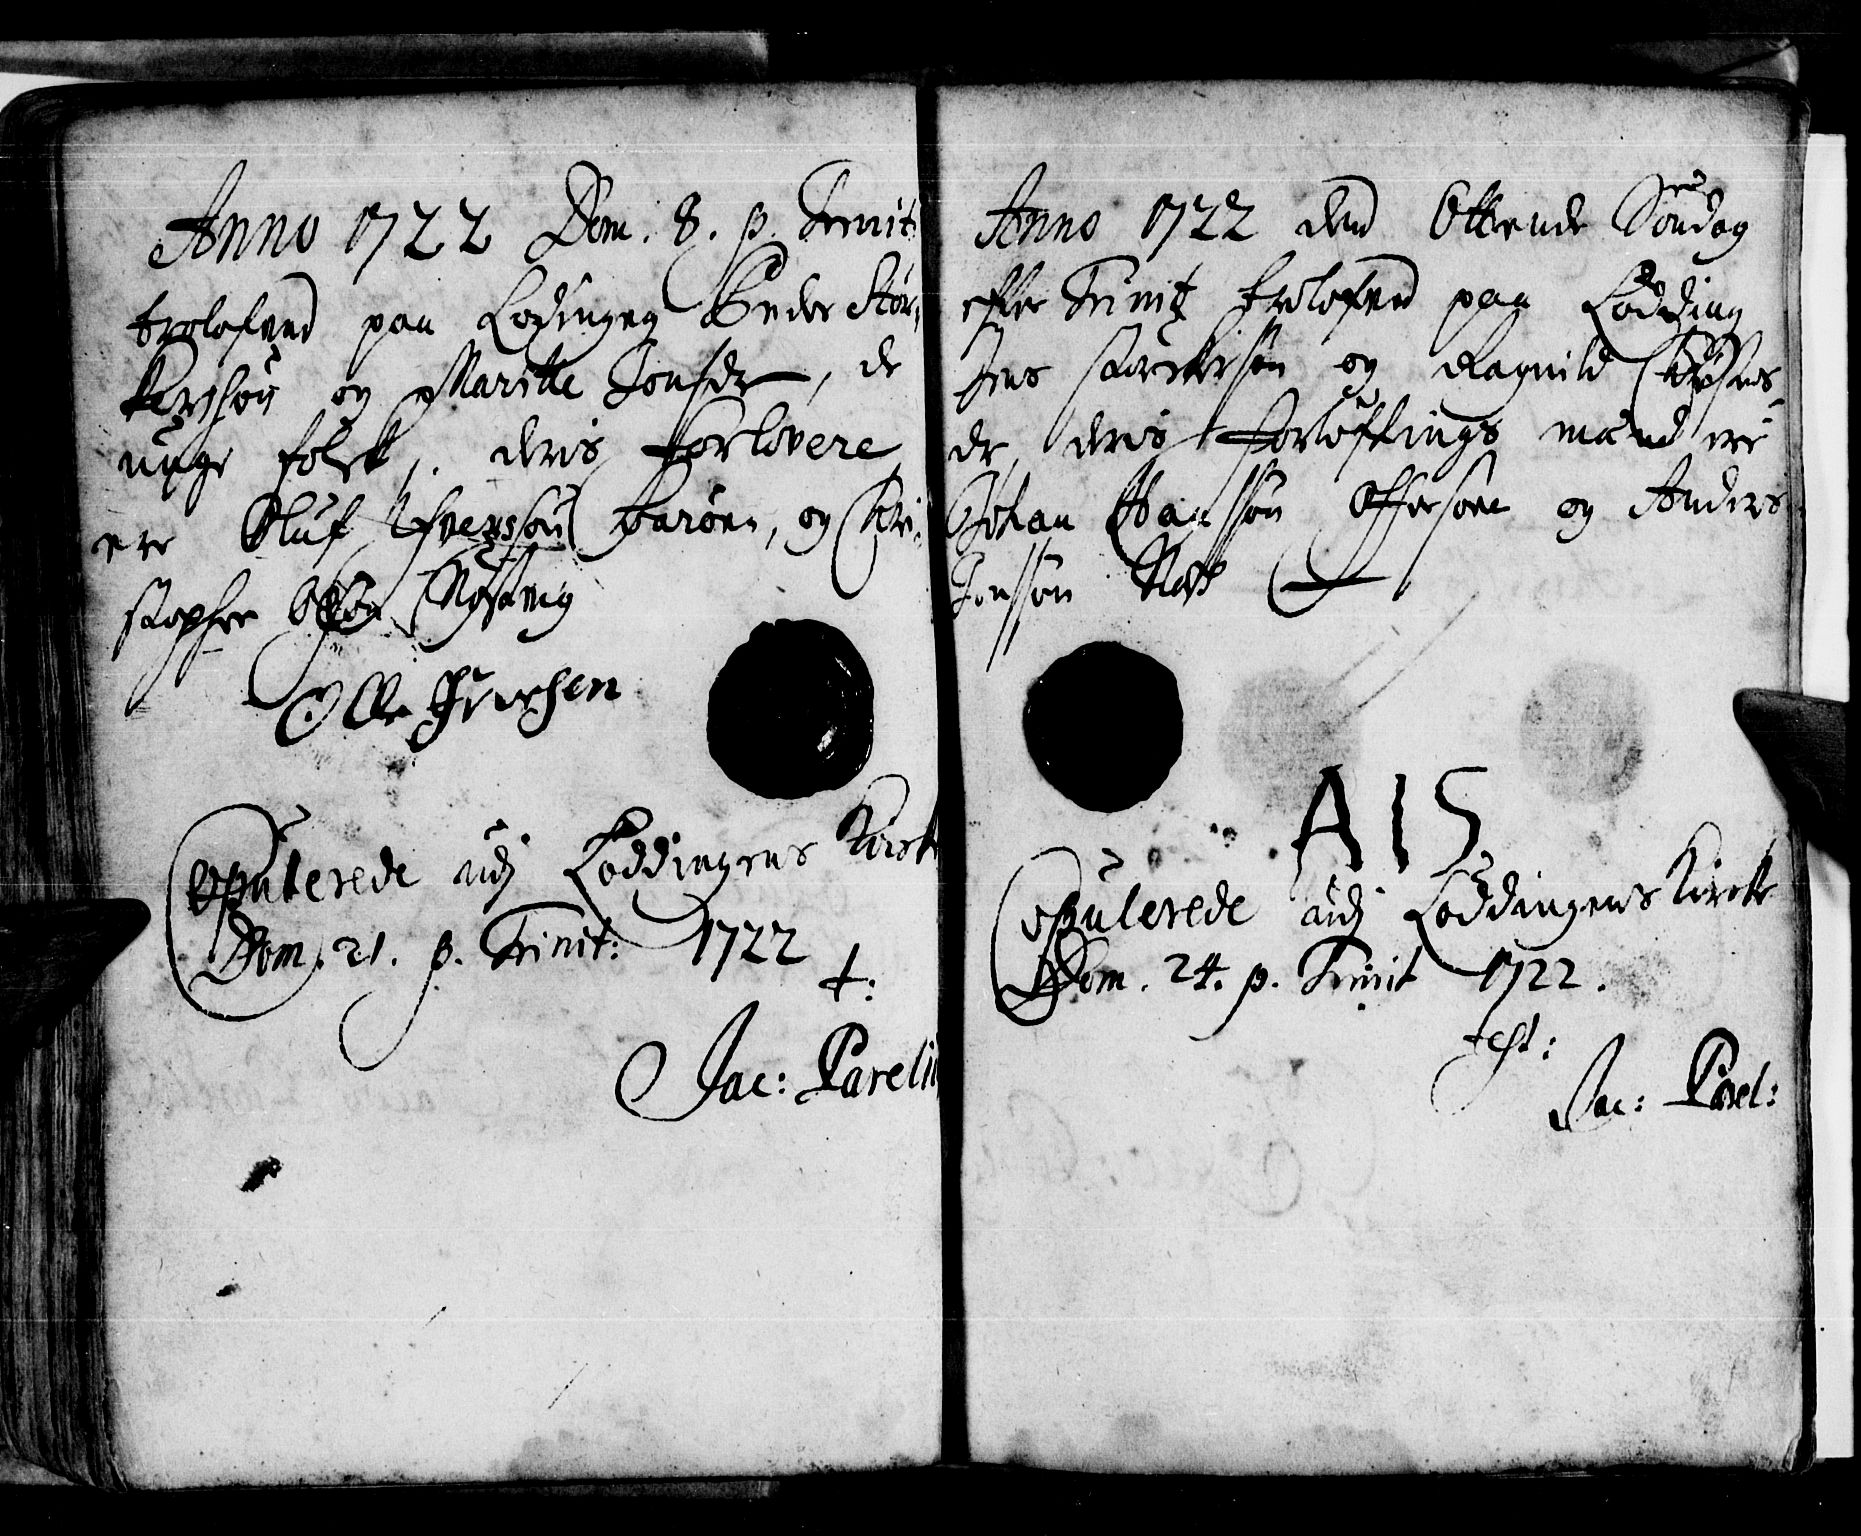 Anno 1722 Dom. 8. p. Trinit
trolofved paa Lodingen Peder Stør-
kersøn og Maritte Jonsdr, de
unge folck, deris forlovere
ere Oluf Ifversøn Barøen, og Chri-
stopher
Olle Iversen
Copulerede udj Loddingens Kirck
Dom. 21. p. Trinit: 1722
t:
Jac: Pareliu
Anno 1722 den Ottende Søndag
efter Trinit trolofved paa Lødding
Jens Størckersøn og Ragnild
dr, deris forløftings mænd ere
Johan Hansøn Offersøe og Anders
Jonsøn Næs
A I S
Copulerede udj Loddingens Kircke
Dom. 24. p. Trinit 1722.
test:
Jac: Parel: